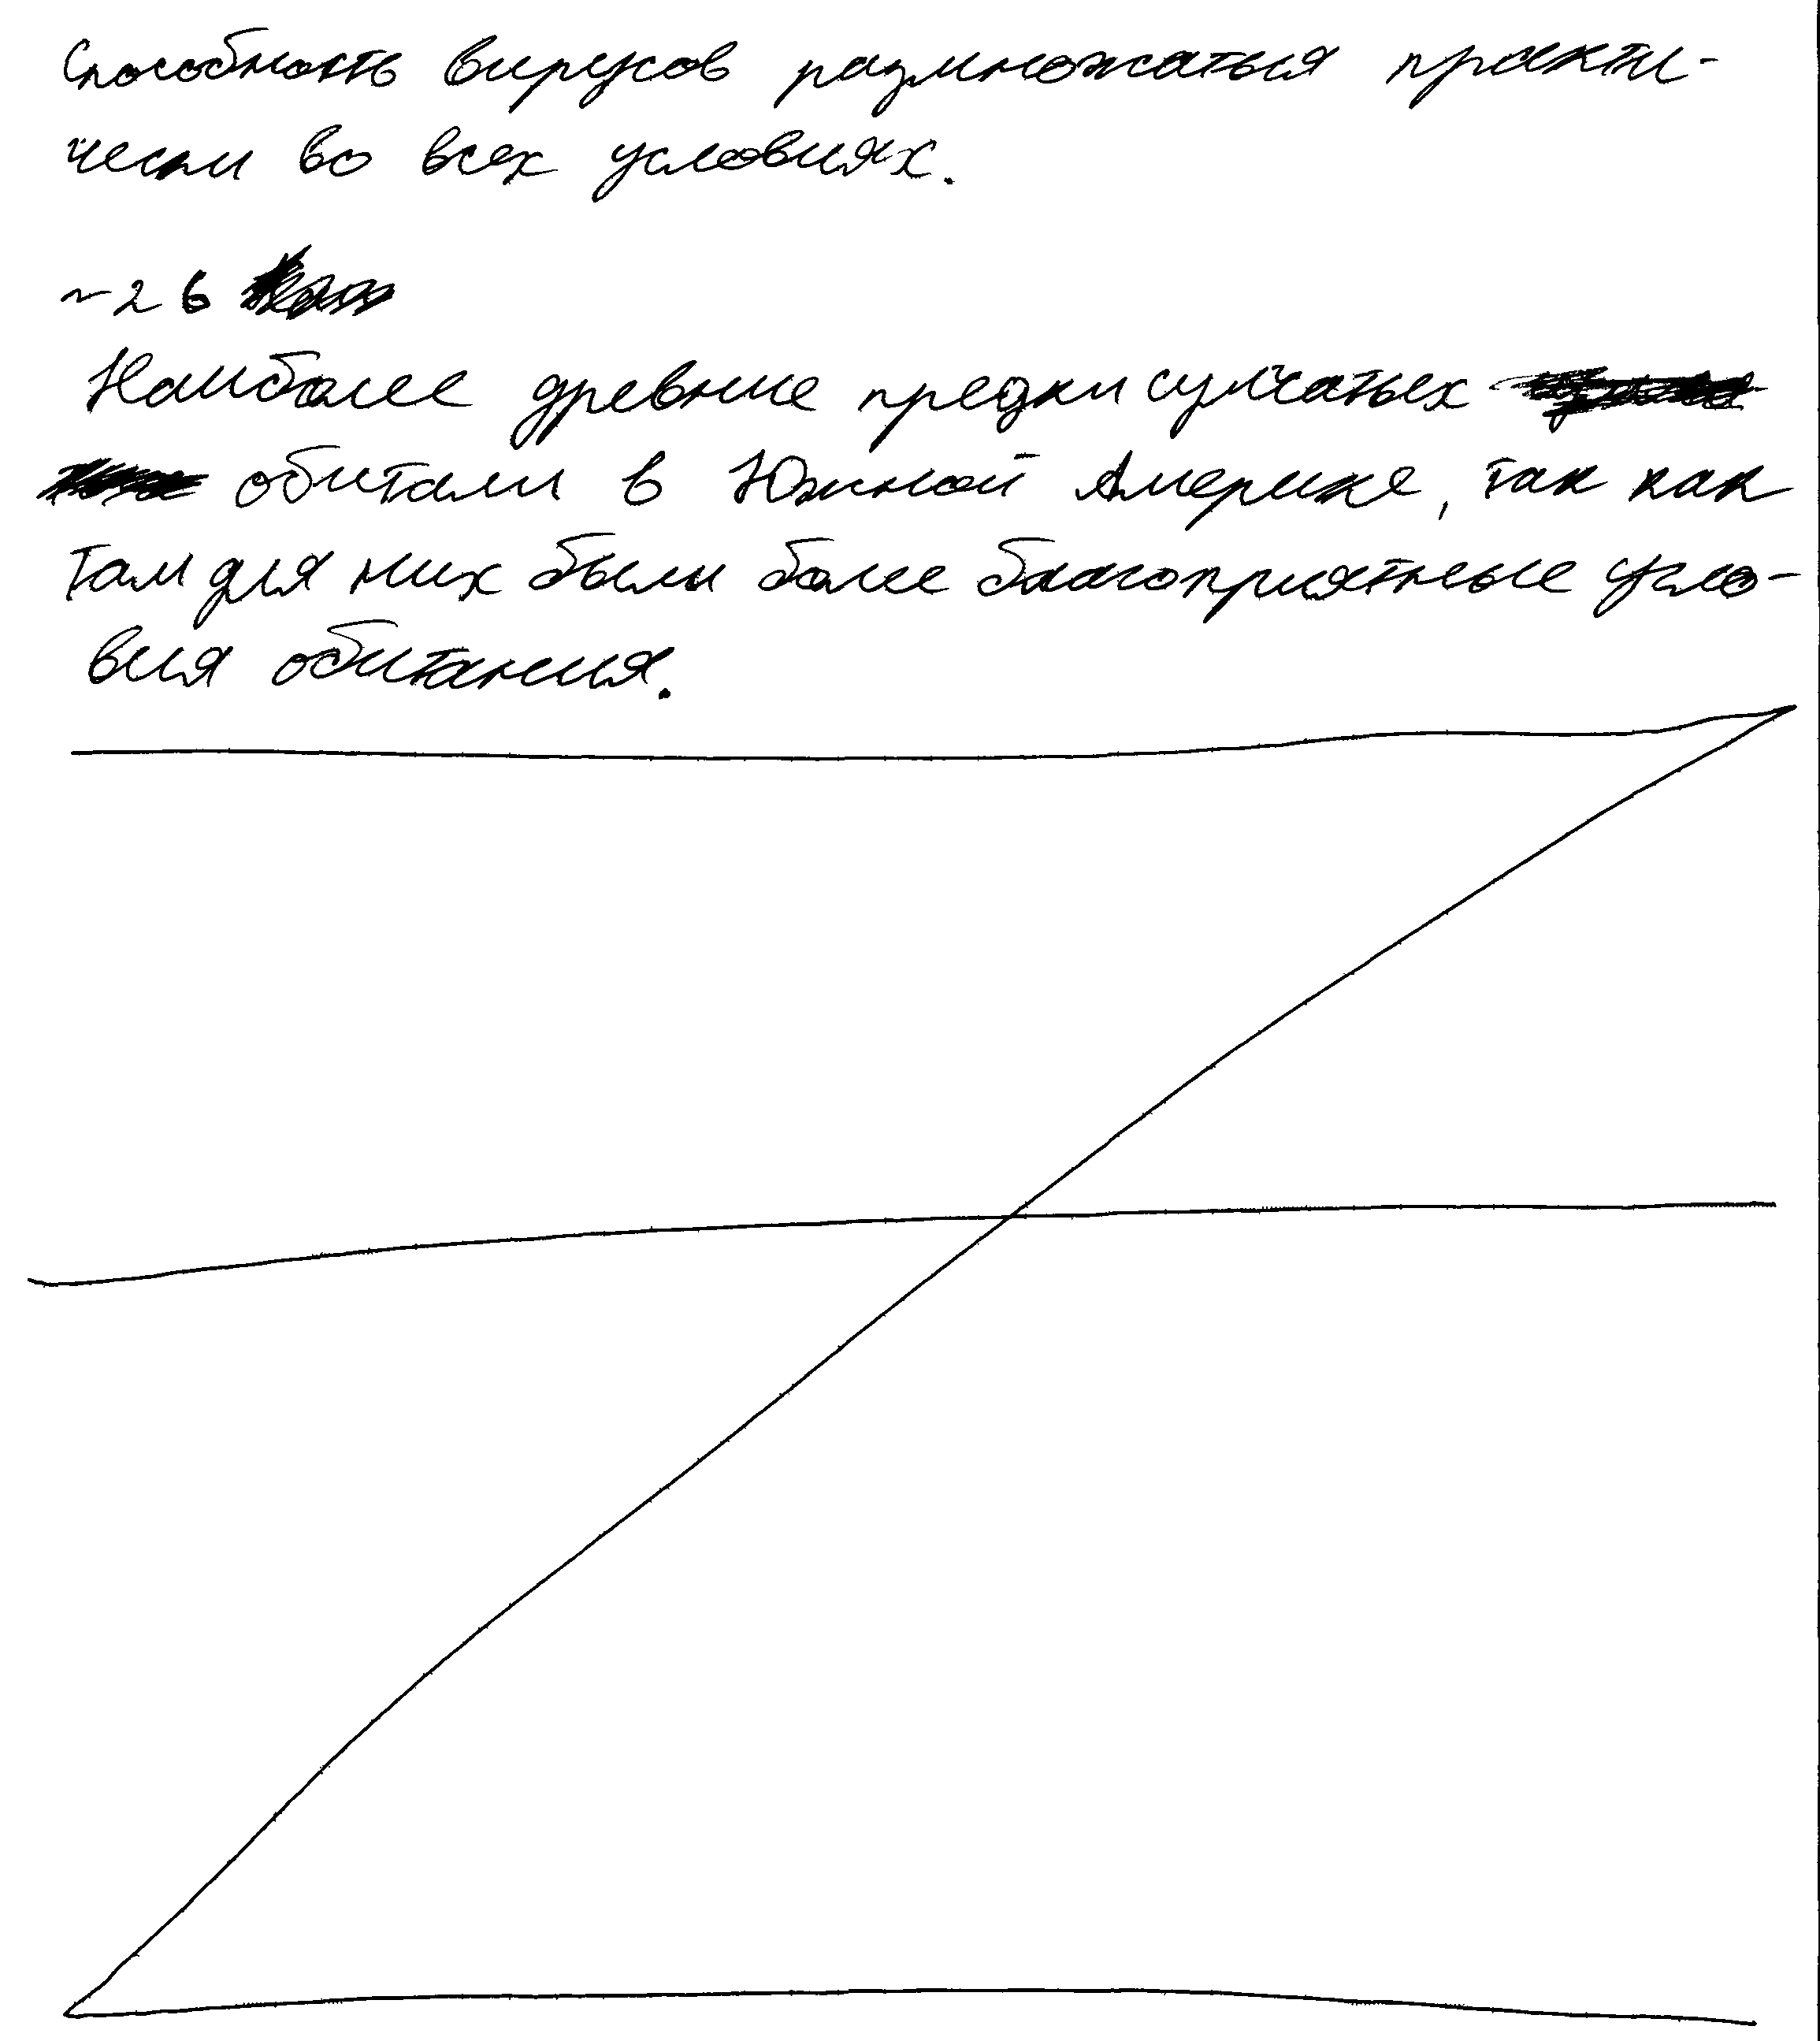 Способность вирусов размножаться практи-
чески во всех условиях.
~26
Наиболее древние предки сумчатых
обитали в Южной Америке, так как
там для них были более благоприятные усло-
вия обитания.